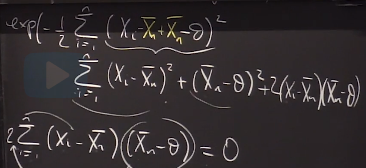 exp(-½ Σᵢ₌₁ⁿ (Xᵢ-X̄ₙ+X̄ₙ-θ)²
Σᵢ₌₁ⁿ (Xᵢ-X̄ₙ)²+(X̄ₙ-θ)²+2(Xᵢ-X̄ₙ)(X̄ₙ-θ)
2Σᵢ₌₁ⁿ (Xᵢ-X̄ₙ)(X̄ₙ-θ)=0